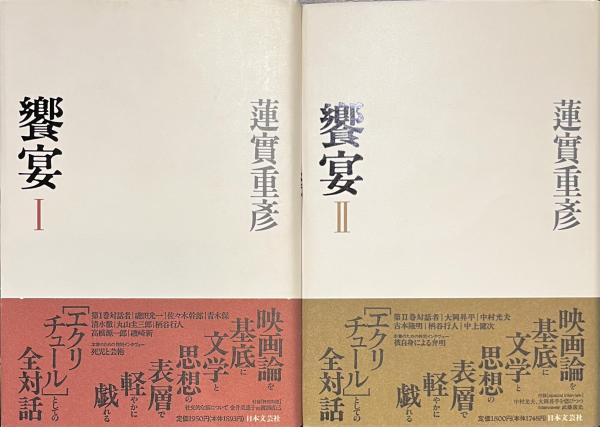 蓮實重彥
饗宴
I
映画論を
基底に
文学と
思想の
表層で
軽やかに
戯れる
[エクリ
チュール]としての
全対話
第I巻対話者|磯田光一|佐々木幹郎|青木保
清水徹|丸山圭三郎|柄谷行人
高橋源一郎|磯崎新
本書のための特別インタヴュー
死児と芸術
定価1950円(本体1893円)
日本文芸社
蓮實重彥
饗宴
II
映画論を
基底に
文学と
思想の
表層で
軽やかに
戯れる
[エクリ
チュール]としての
全対話
第II巻対話者|大岡昇平|中村光夫
吉本隆明|柄谷行人|中上健次
本書のための特別インタヴュー
彼自身による弁明
中村光夫、大岡昇平を偲びつつ
定価1800円(本体1748円)
日本文芸社